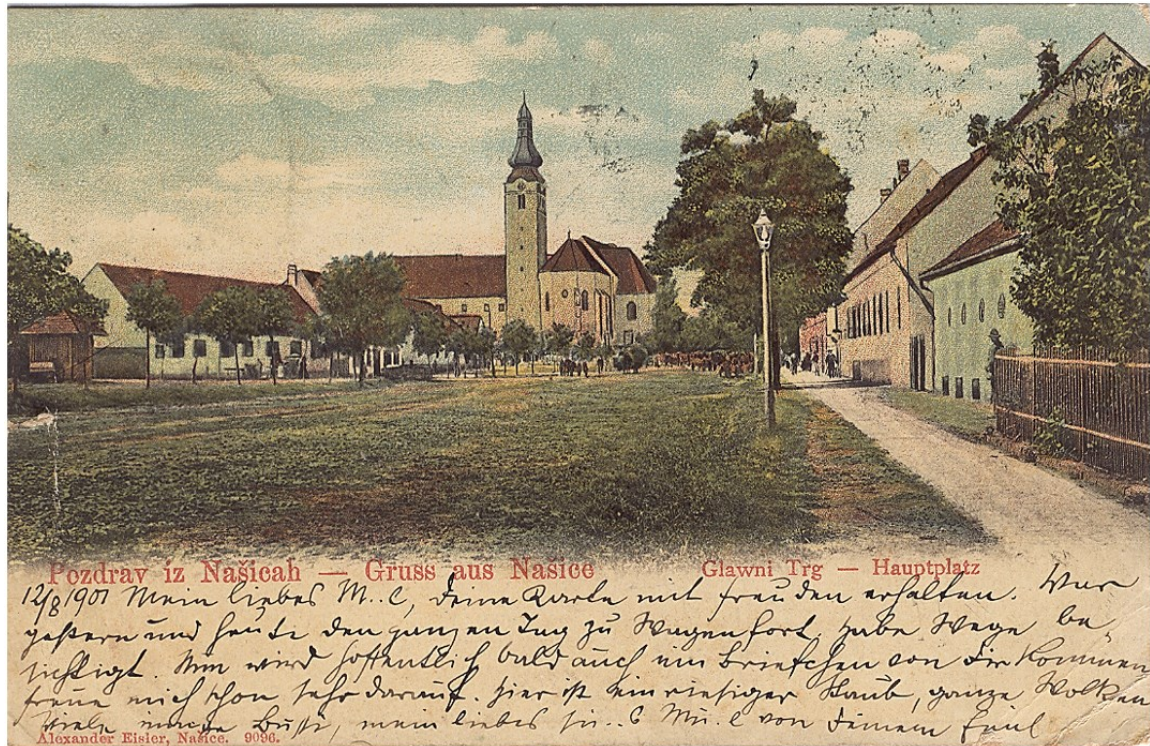 Pozdrav iz Našicah — Gruss aus Nasice Glawni Trg — Hauptplatz
12/8 1901 Mein liebes M..l, Deine Karte mit freuden erhalten. War
gestern und heute den ganzen Tag zu Wagen fort, habe Wege be
sichtigt. Nun wird hoffentlich bald auch ein Briefchen von Dir kommen
freue mich schon sehr darauf. Hier ist ein riesiger Staub, ganze Wolken
Viele Bussi, mein liebes von Deinem
Alexander Eisler, Našice. 9096.